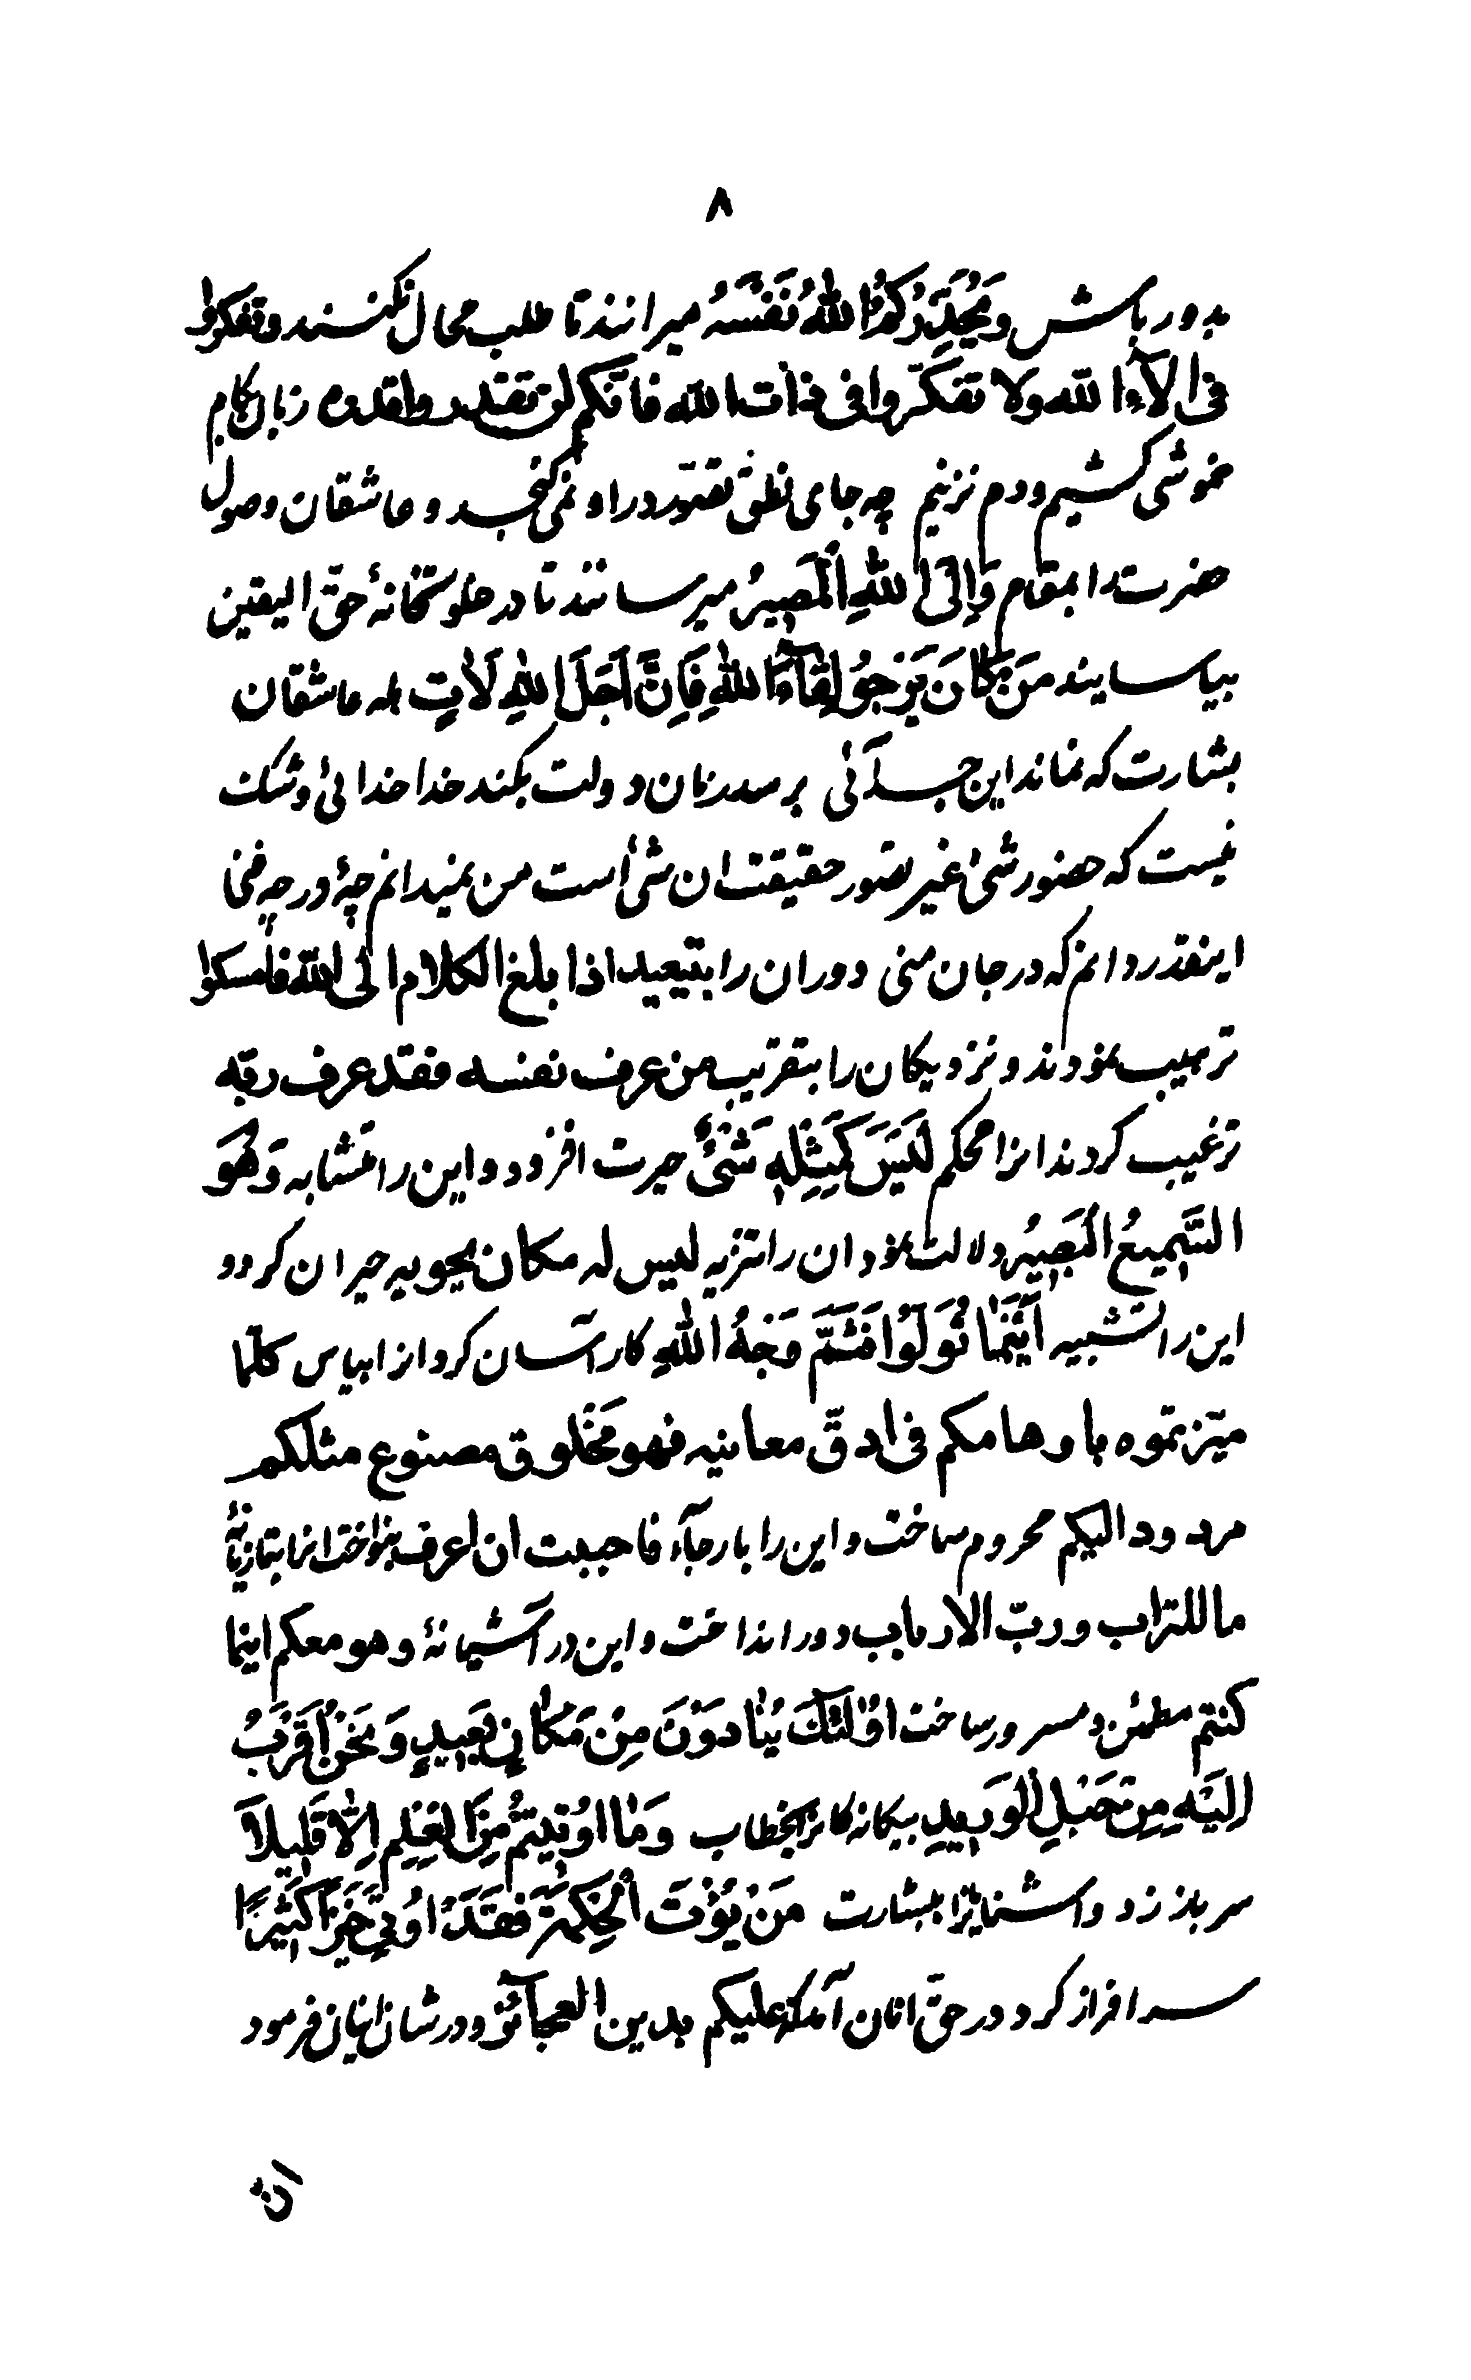 ۸
بدور باش وَيُحَذِّرُكُمُ اللهُ نَفْسَهُ میرانند تا طلب محال نکنند و تفکروا
فی الآء الله ولا تفکّروا فی ذات الله فانّکم لن تقدروا قدره زبان بکام
خموشی کشیم و دم نزنیم چه جای نطق تصوّر در او نمی گنجد و عاشقان وصول
حضرت را بمقام وَإِلَى اللهِ الْمَصِيرُ میرسانند تا در خلوتخانهٔ حقّ الیقین
بیاسایند مَنْ كَانَ يَرْجُو لِقَآءَ اللهِ فَاِنَّ اَجَلَ اللهِ لَاٰتٍ هله عاشقان
بشارت که نماند این جدآئی برسد زمان دولت بکند خدا خدائی و شک
نیست که حضور شئ غیر تصور حقیقت ان شئ است من نمیدانم چهٔ و رچه فنی
اینقدر دانم که در جان منی دوران را بتبعید اذا بلغ الکلام الی الله فامسکوا
ترهیب نمودند و نزدیکان را بتقریب من عرف نفسه فقد عرف ربّه
ترغیب کردند انرا محکم لَيْسَ كَمِثْلِهِ شَيْئٌ حیرت افزود و این را متشابه وَهُوَ
السَّمِيعُ الْبَصِيرُ دلالت نمود ان را تنزیه لیس له مکان یحویه حیران کرد و
این را تشبیه اَيْنَمَا تُوَلُّوا فَثَمَّ وَجْهُ اللهِ کار آسان کرد انرا بیاس کلّما
میّزتموه باوهامکم فی ادقّ معانیه فهو مَخلوق مصنوع مثلکم
مردود الیکم محروم ساخت و این را بارجآء فاحببت ان اعرف بنواخت انرا بتازیانهٔ
ما للتراب و ربّ الارباب دور انداخت و این در آشیانهٔ و هو معکم اینما
کنتم مطمئن و مسرور ساخت اُولٰئِكَ يُنَادَوْنَ مِنْ مَكَانٍ بَعِيدٍ وَنَحْنُ اَقْرَبُ
اِلَيْهِ مِنْ حَبْلِ الْوَرِيدِ بیکانه کانرا بخطاب وَمَا اُوتِيتُمْ مِنَ الْعِلْمِ اِلَّا قَلِيلًا
سر باز زد و اشنایانرا ببشارت مَنْ يُؤْتَ الْحِكْمَةَ فَقَدْ اُوتِيَ خَيْرًا كَثِيرًا
سرافراز کرد در حقّ انان آمد که علیکم بدین العجآئز و در شان اینان فرمود